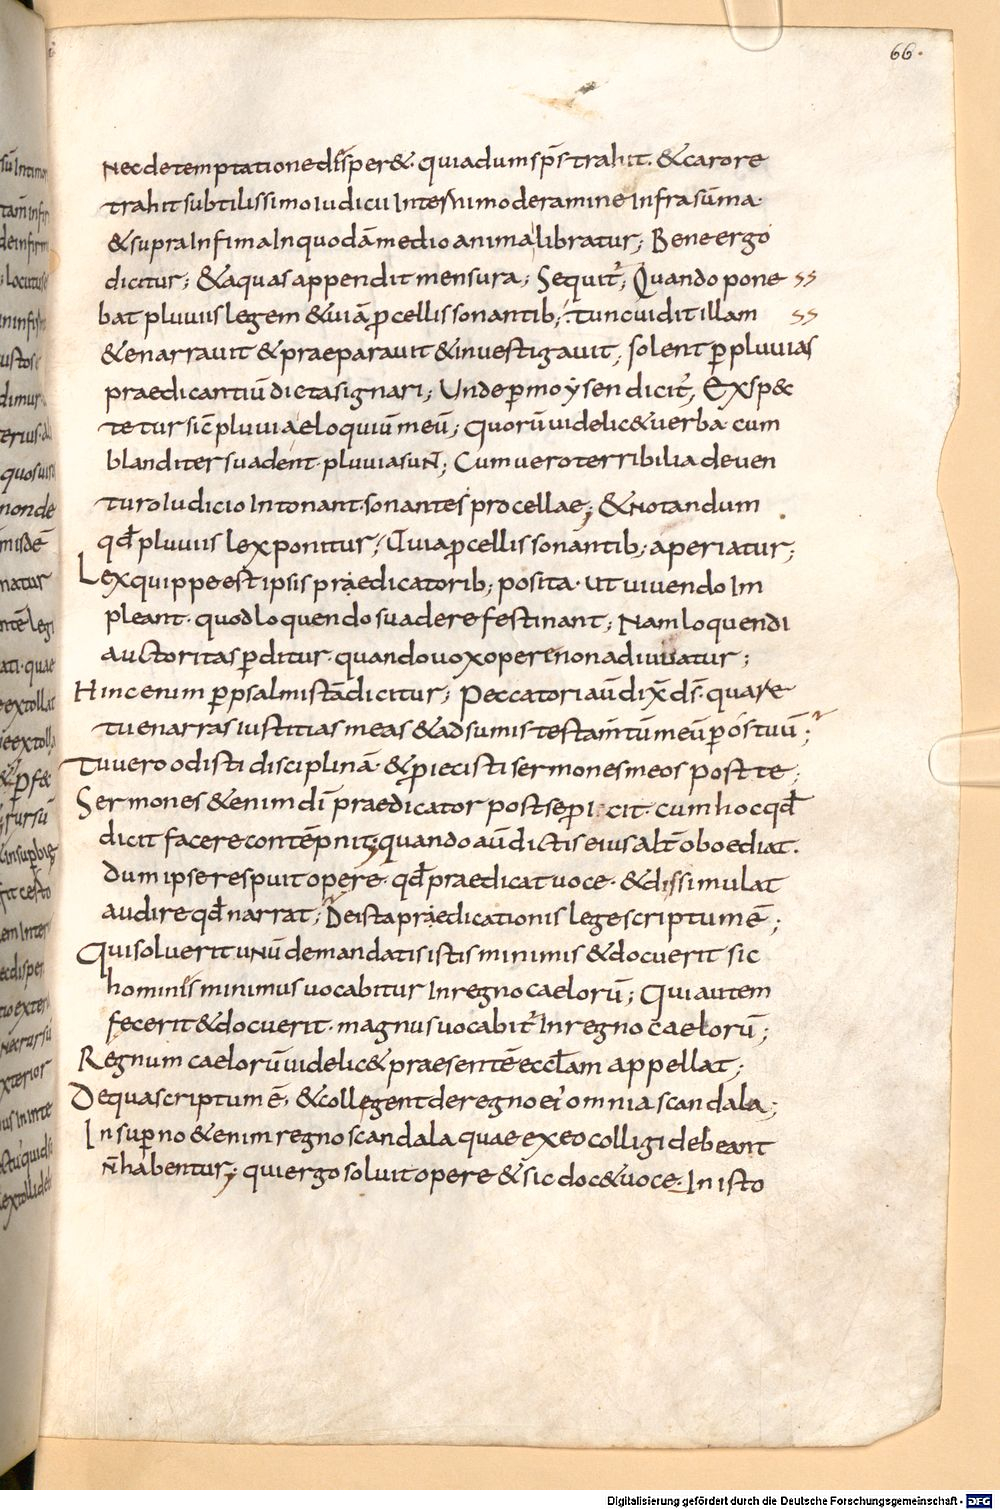 66.
Nec de temptatione disper&. quia dum sp̄s trahit. & caro re
trahit subtilissimo iudicii interni moderamine infra sūma
& supra infima in quodā medio anima libratur; Bene ergo
dicitur; & aquas appendit mensura; Sequit᷑; Quando pone
bat pluuiis legem & uiā ꝓcellis sonantib; tunc uidit illam
& enarrauit & praeparauit & inuestigauit; solent ꝑ pluuias
praedicantiū dicta signari; Unde ꝑ moysen dicit᷑; Exsp&c
tetur sic̄ pluuia eloquiū meū; Quorū uidelic& uerba cum
blanditer suadent. pluuia suNt; Cum uero terribilia de uen
turo iudicio intonant. sonantes procellae; & notandum
qđ pluuiis lex ponitur; & uia ꝓcellis sonantib; aperiatur;
Lex quippe est ipsis praedicatorib; posita. ut uiuendo im
pleant. quod loquendo suadere festinant; Nam loquendi
auctoritas ꝑditur. quando uox opere non adiuuatur;
Hinc enim ꝑ psalmistā dicitur; Peccatori aū dix̄ ds̄. quare
tu enarras iustitias meas & adsumis testam̄tū meū ꝑ os tuū;
Tu uero odisti disciplinā. & ꝓiecisti sermones meos post te;
Sermones & enim dī praedicator post se ꝓicit. cum hoc qđ
dicit facere contēpnit; quando aū dictis eius alt̄ oboediat.
dum ipse respuit opere. qđ praedicat uoce. & dissimulat
audire qđ narrat; De ista praedicationis lege scriptum ē;
Qui soluerit unū de mandatis istis minimis & docuerit sic
homines minimus uocabitur in regno caelorū; Qui autem
fecerit & docuerit. magnus uocabit᷑ in regno caelorū;
Regnum caelorū uidelic& praesentē eccłam appellat;
De qua scriptum ē. & collegent de regno ei᷒ omnia scandala;
In suꝑno & enim regno scandala quae ex eo colligi debeant
n̄ habentur; qui ergo soluit opere & sic doc& uoce. In isto
Digitalisierung gefördert durch die Deutsche Forschungsgemeinschaft - DFG